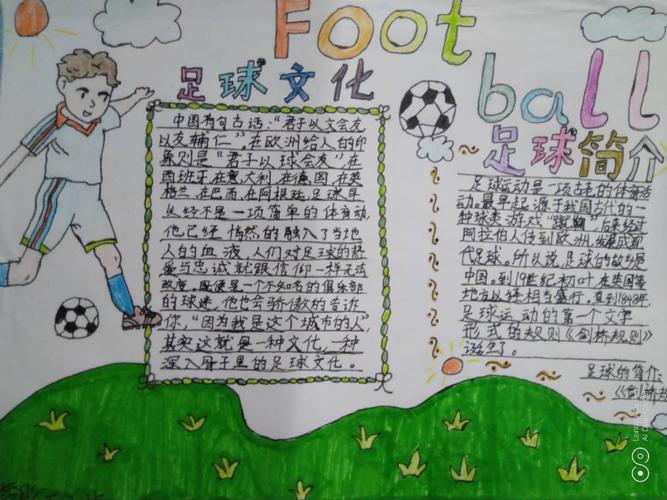 Foot
ball
足球文化
中国有句古话：“君子以文会友
以友辅仁”，在欧洲给人的印
象则是“君子以球会友”在
西班牙，在意大利，在德国，在英
格兰，在巴西，在阿根廷，足球早
已经不是一项简单的体育动
他已经悄然的融入了当地
人的血液，人们对足球的热
爱与忠诚就跟信仰一样无法
改变，既便是一个不知名的俱乐部
的球迷，他也会骄傲的告诉
你，“因为我是这个城市的人”，
其实这就是一种文化，一种
深入骨子里的足球文化。
足球简介
足球运动是一项古老的体育活
动，最早起源于我国古代的一
种球类游戏“蹴鞠”，后来经过
阿拉伯人传到欧洲，发展成现
代足球。所以说，足球的故乡是
中国。到19世纪初叶，在英国等
地方以经相当盛行，直到1848年，
足球运动的第一个文字
形式的规则《剑桥规则》
诞生了。
足球的简介：
《剑桥